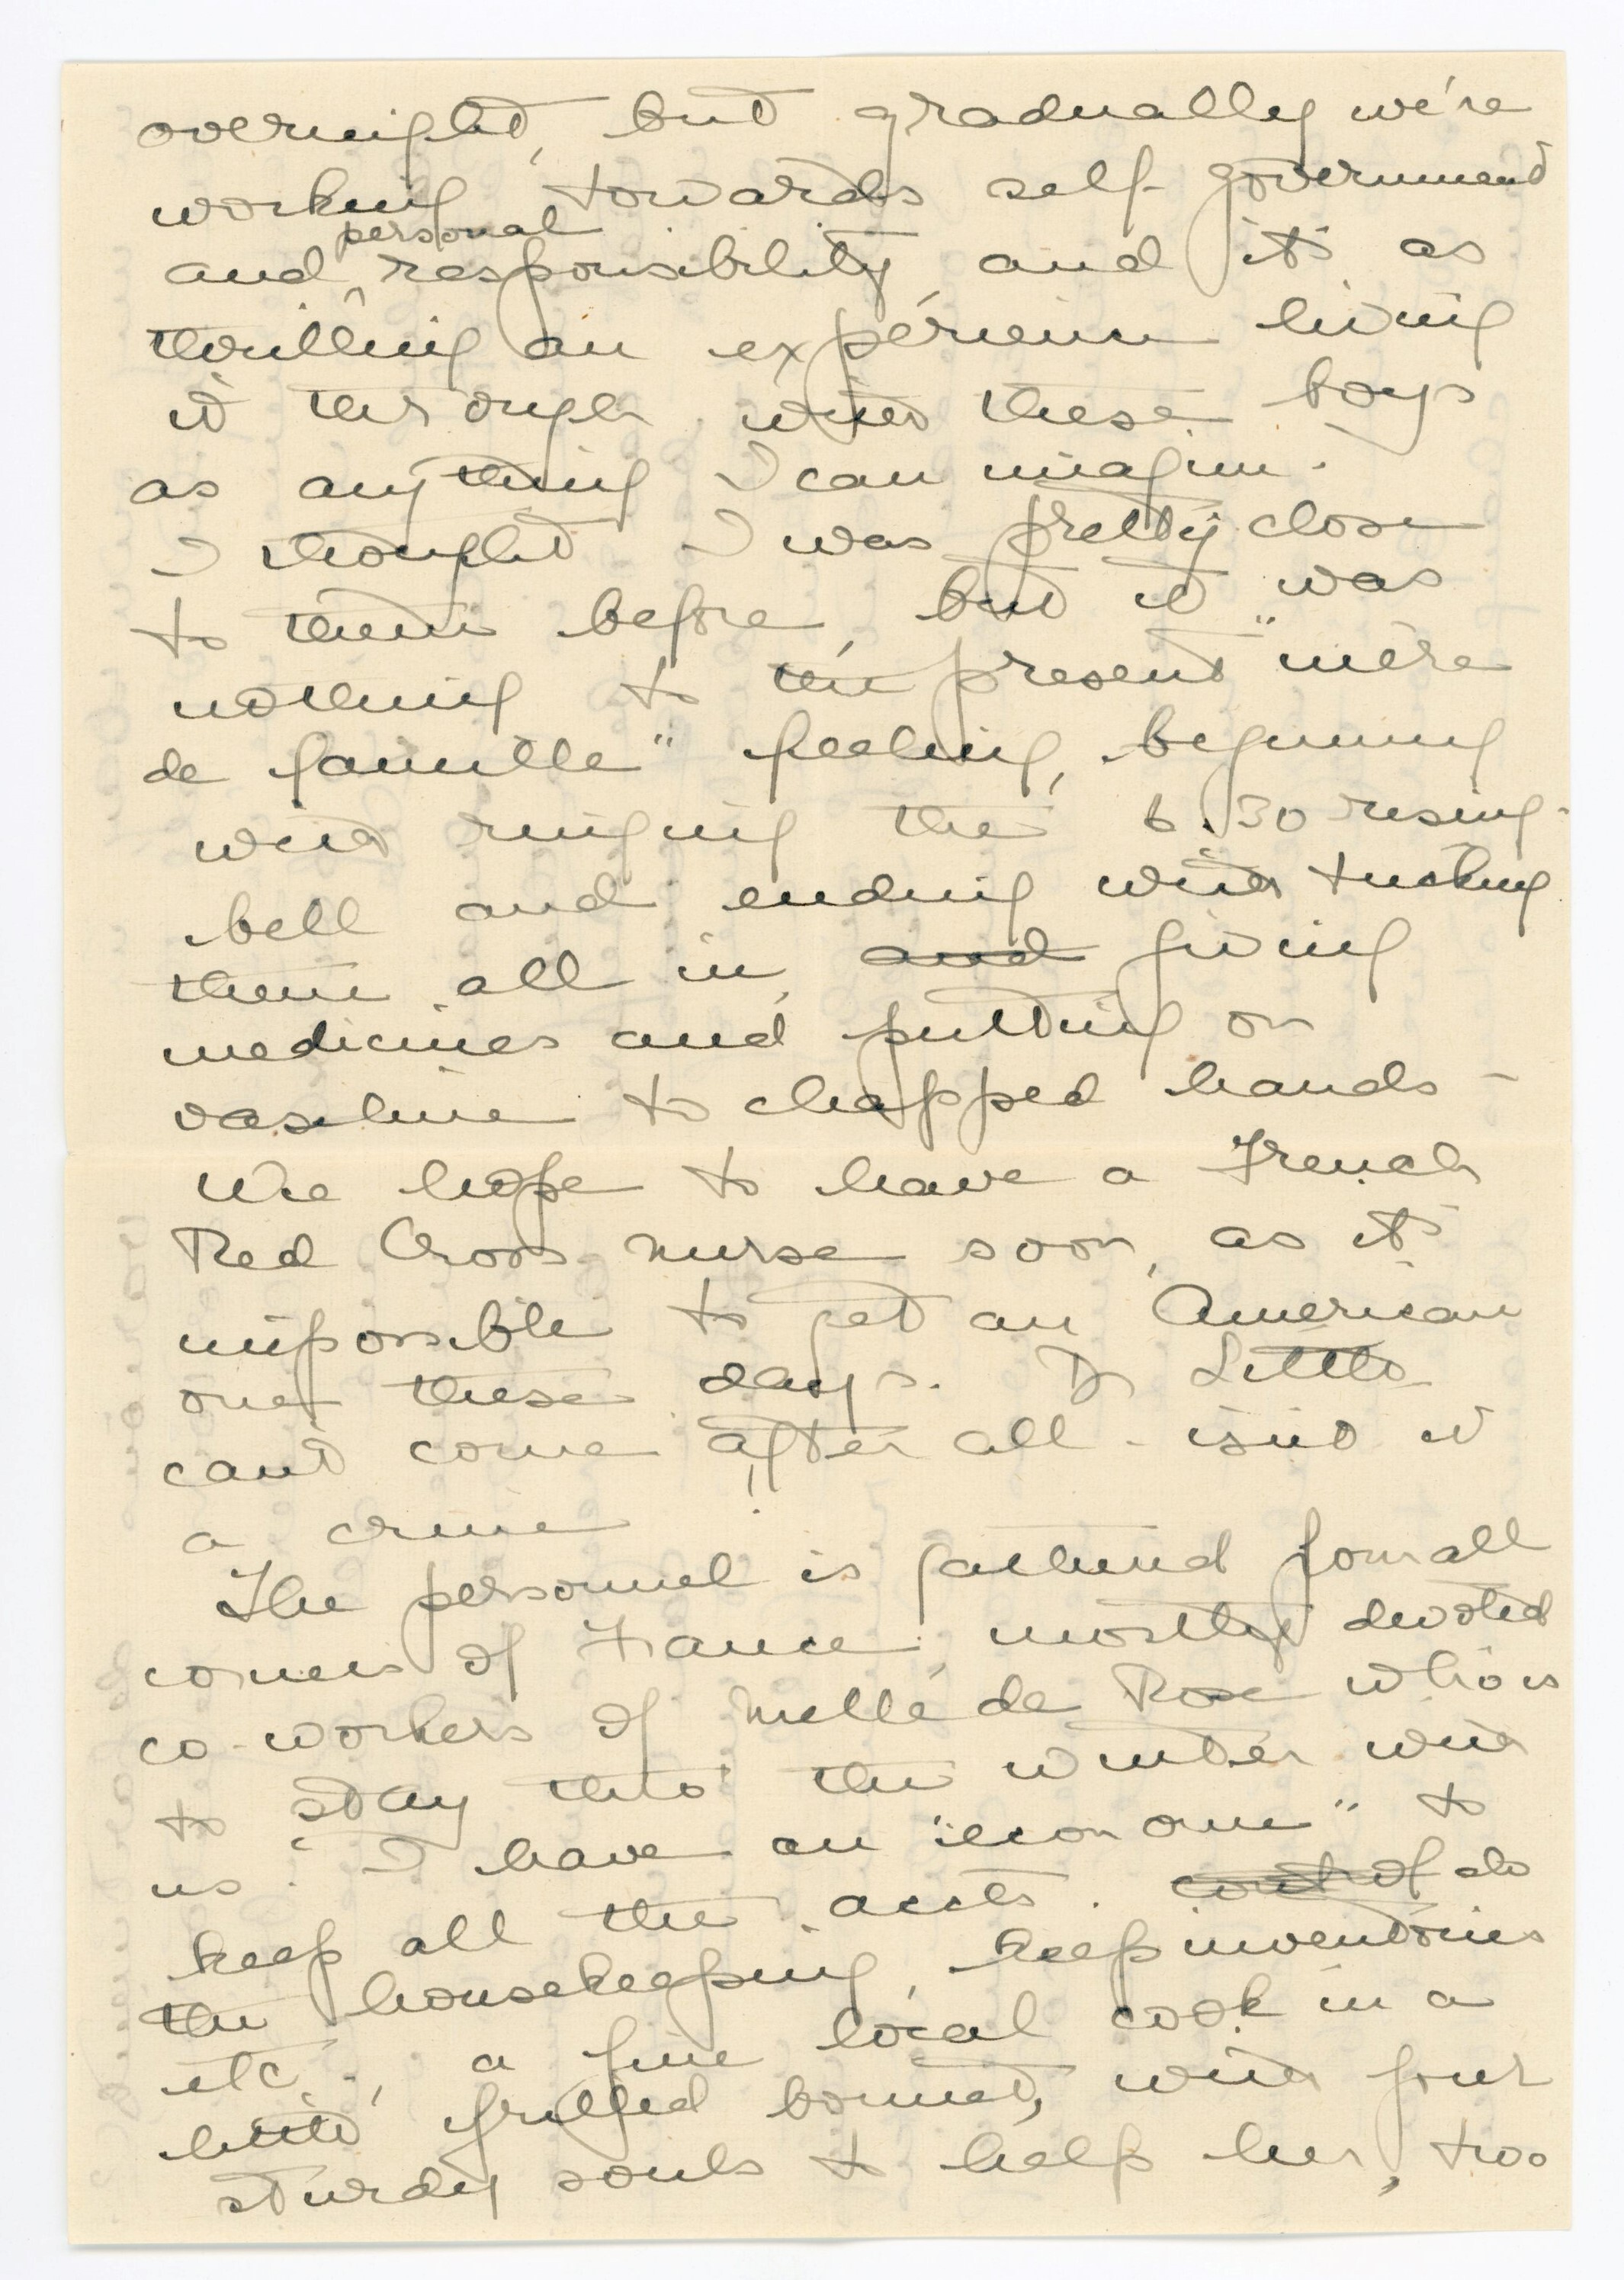 overnight, but gradually we're
working towards self-government
personal
and responsibility, and it's as
thrilling an experience living
it through with these boys
as anything I can imagine.
I thought I was pretty close
to them before, but it was
nothing to the present "mère
de famille" feeling, beginning
with ringing the 6.30 rising-
bell and ending with tucking
them all in, and giving
medicines and putting on
vaseline to chapped hands -
We hope to have a French
Red Cross nurse soon, as it's
impossible to get an American
one these days. Dr Little
can't come after all - isn't it
a crime!
The personnel is gathered from all
corners of France, mostly devoted
co-workers of Melle de Rose who is
to stay thro' the winter with
us. I have an "econome" to
keep all the accts. control of do
the housekeeping, keep inventories
etc., a fine local cook in a
little frilled bonnet, with four
sturdy souls to help her, two